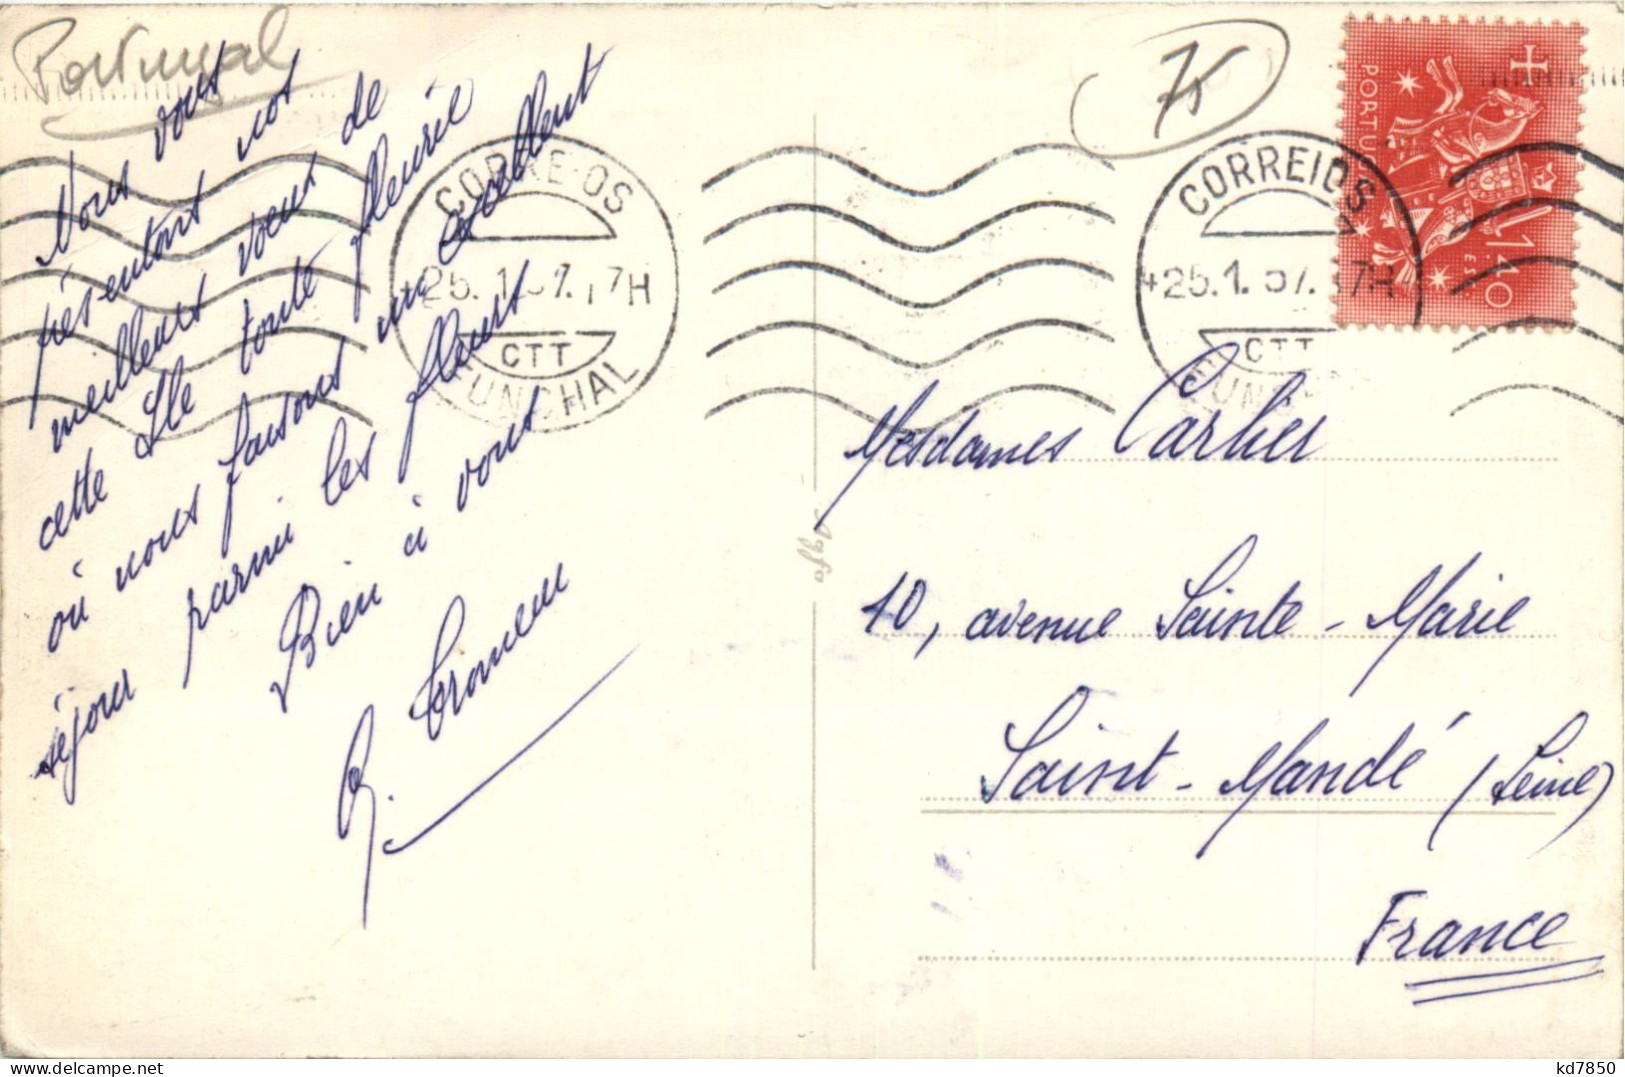 Portugal
75
Nous vous
présentons nos
meilleurs voeux de
cette Ile toute fleurie
où nous faisons un excellent
séjour parmi les fleurs
Bien à vous
CORREIOS
25.1.57.17H
CTT
FUNCHAL
CORREIOS
25.1.57.17H
CTT
FUNCHAL
PORTUGAL
1$40
Agfa
Mesdames Carlier
10, avenue Sainte-Marie
Saint-Mandé (Seine)
France
kd7850